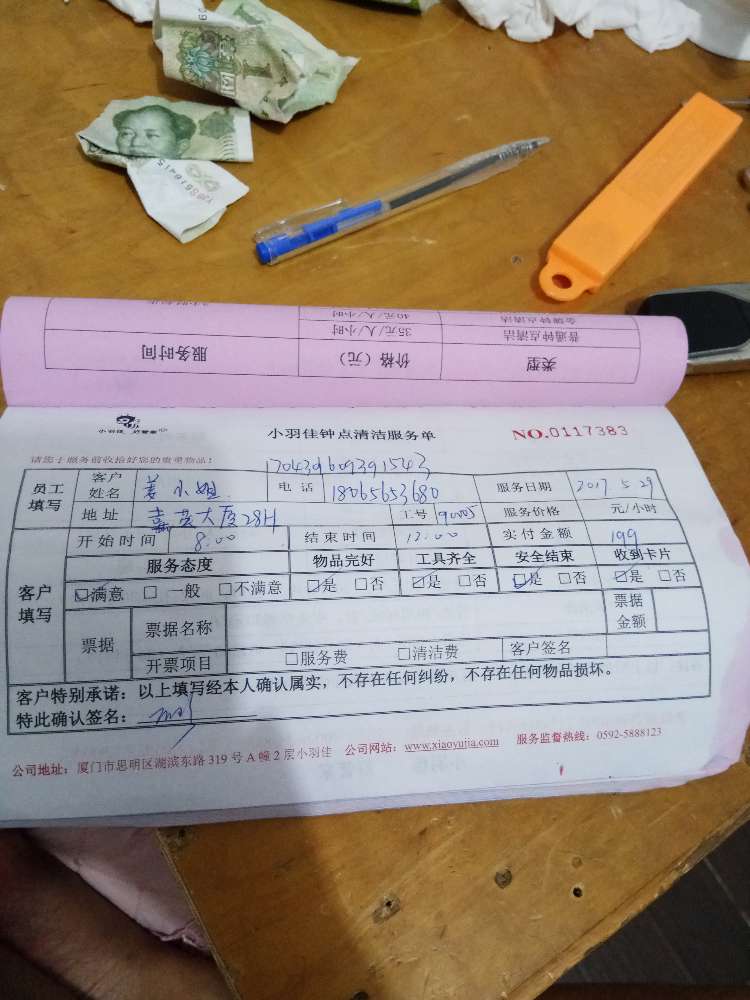 1
YZ8S618415
金牌钟点清洁 40元/人/小时
普通钟点清洁 35元/人/小时
类型 价格（元） 服务时间
小羽佳 好管家
小羽佳钟点清洁服务单
NO.0117383
请您于服务前收拾好您的贵重物品！
170439609391543
员工填写 客户姓名 姜小姐 电话 18065653680 服务日期 2017 5 29
地址 嘉英大厦28H 工号 90005 服务价格 元/小时
客户填写 开始时间 8:00 结束时间 12:00 实付金额 199
服务态度 物品完好 工具齐全 安全结束 收到卡片
☑满意 □一般 □不满意 ☑是 □否 ☑是 □否 ☑是 □否 ☑是 □否
票据 票据名称 票据金额
开票项目 □服务费 □清洁费 客户签名
客户特别承诺：以上填写经本人确认属实，不存在任何纠纷，不存在任何物品损坏。
特此确认签名：
公司地址：厦门市思明区湖滨东路 319 号 A 幢 2 层小羽佳 公司网站：www.xiaoyujia.com 服务监督热线：0592-5888123